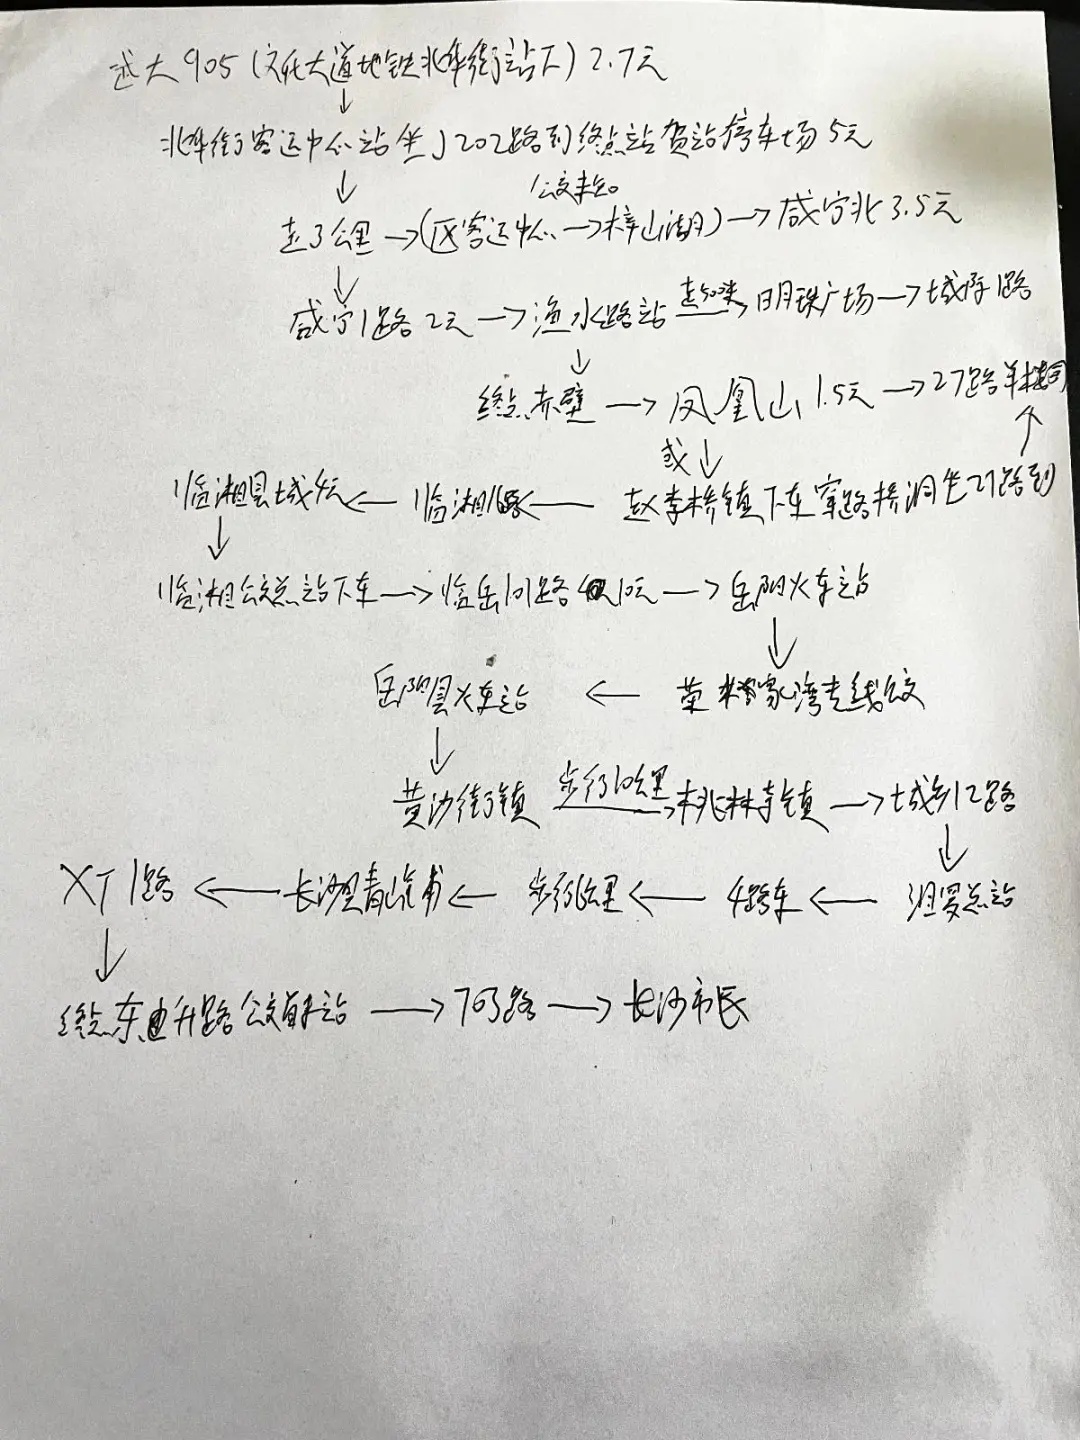 远大905(文化大道地铁北华街站下)2.7元
↓
北华街客运中心站坐J202路到终点站贺站停车场5元
↓ 公交未知
走3公里→(区客运中心→梓山湖)→咸宁北3.5元
↓
咸宁1路2元→渔水路站 走50米→ 明珠广场→城际1路
↓
终点赤壁→凤凰山1.5元→27路羊楼司
或↓ ↑
临湘县城4元←临湘16路←赵李桥镇下车穿路桥洞坐27路到
↓
临湘公交总站下车→临岳101路10元→岳阳火车站
↓
岳阳县火车站←荣家湾专线公交
↓
黄沙街镇 步行10公里→ 桃林寺镇→城乡12路
↓
XT1路←长沙界青山 ←步行 公里←4路车←汨罗总站
↓
终点东 升路公交首末站→703路→长沙市民